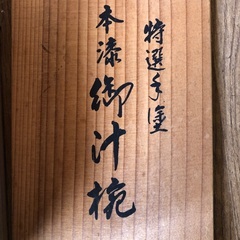 特選手塗
本漆御汁椀